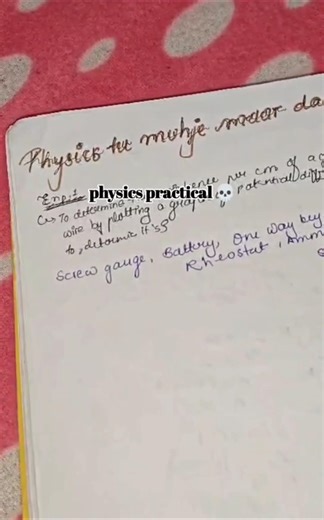 Physics tu mujhe maar da
Expt:
physics practical 💀
To determine per cm of a g
wire by plotting a graph potential diff
to, determine it's
Screw gauge, Battery, One way key
Rheostat, Amm